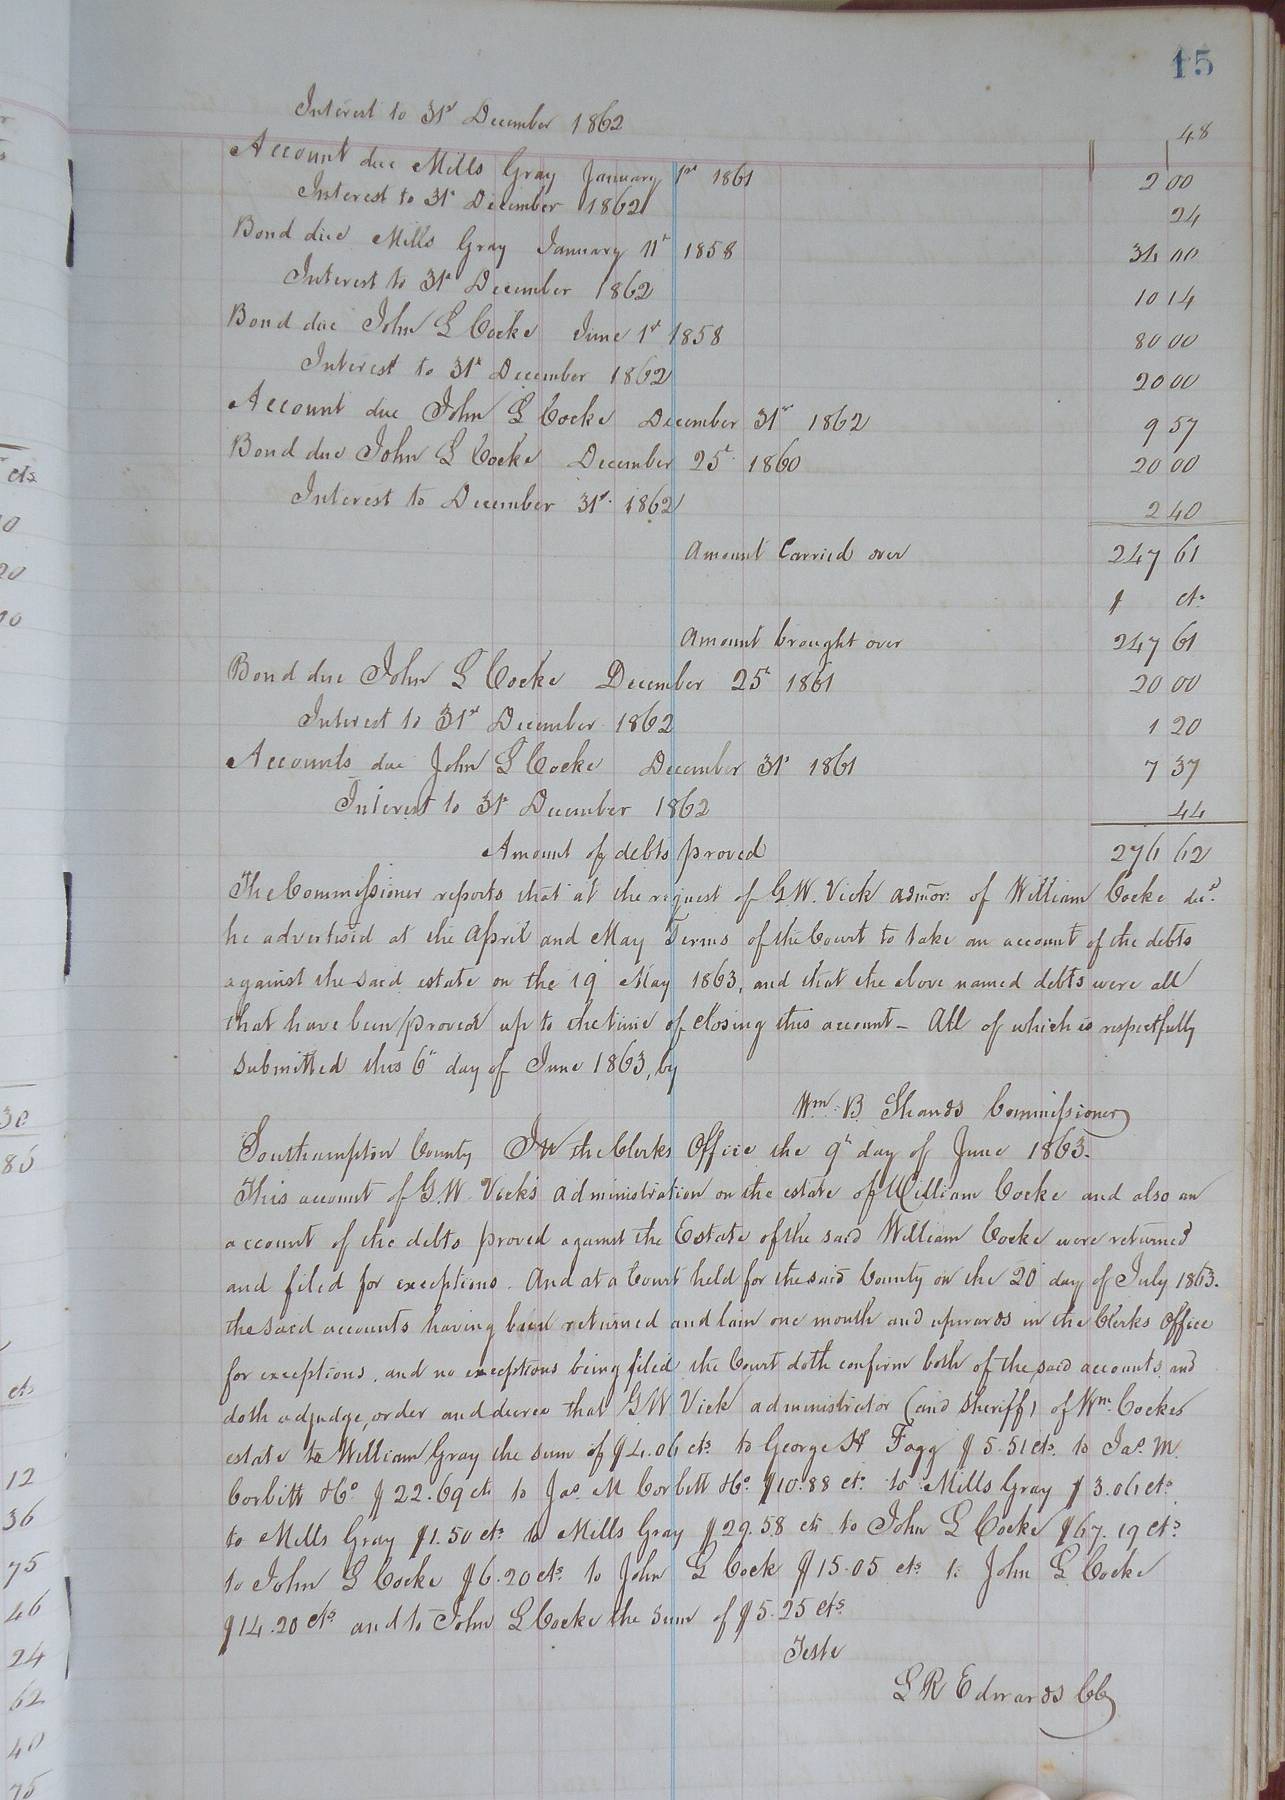 15
Interest to 31st December 1862 48
Account due Mills Gray January 1st 1861 2 00
Interest to 31st December 1862 24
Bond due Mills Gray January 11t 1858 34 00
Interest to 31st December 1862 10 14
Bond due John L Cocke June 1st 1858 80 00
Interest to 31st December 1862 20 00
Account due John L Cocke December 31st 1862 9 57
Bond due John L Cocke December 25t 1860 20 00
Interest to December 31st 1862 2 40
Amount Carried over 247 61
$ cts
Amount brought over 247 61
Bond due John L Cocke December 25t 1861 20 00
Interest to 31st December 1862 1 20
Accounts due John L Cocke December 31st 1861 7 37
Interest to 31st December 1862 44
Amount of debts proved 276 62
The Commissioner reports that at the request of G.W. Vick admor: of William Cocke decd
he advertised at the April and May Terms of the Court to take an account of the debts
against the said estate on the 19 May 1863, and that the above named debts were all
that have been proved up to the time of closing this account – All of which is respectfully
submitted this 6t day of June 1863, by
Wm. B Shands Commissioner
Southampton County In the Clerks Office the 9th day of June 1863.
This account of G.W. Vick's administration on the estate of William Cocke and also an
account of the debts proved against the Estate of the said William Cocke were returned
and filed for exceptions. And at a Court held for the said County on the 20t day of July 1863.
the said accounts having been returned and lain one month and upwards in the Clerks Office
for exceptions, and no exceptions being filed the Court doth confirm both of the said accounts and
doth adjudge, order and decree that G W Vick administrator (and sheriff) of Wm Cockes
estate to William Gray the sum of $4.06 cts to George H Fagg $5.51 cts. to Jas. M.
Corbitt &Co $22.69 cts to Jas. M Corbitt &Co. $10.88 cts. to Mills Gray $3.06 cts
to Mills Gray $1.50 cts to Mills Gray $29.58 cts to John L Cocke $67.19 cts
to John L Cocke $6.20 cts. to John L Cock $15.05 cts to John L Cocke
$14.20 cts and to John L Cocke the sum of $5.25 cts
Teste
L R Edwards CC